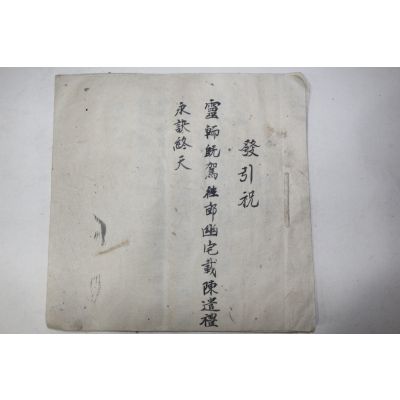 發引祝
靈輀既駕往卽幽宅載陳遣禮
永訣終天